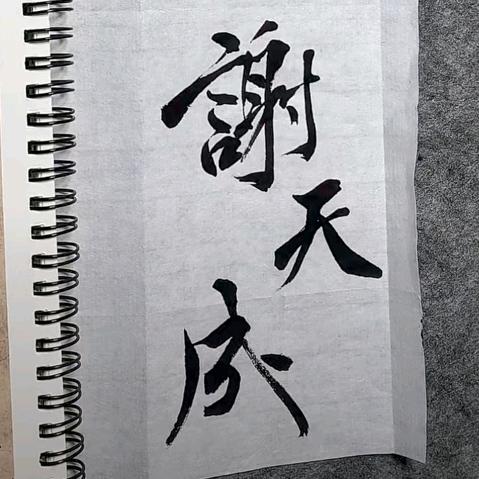 謝天成